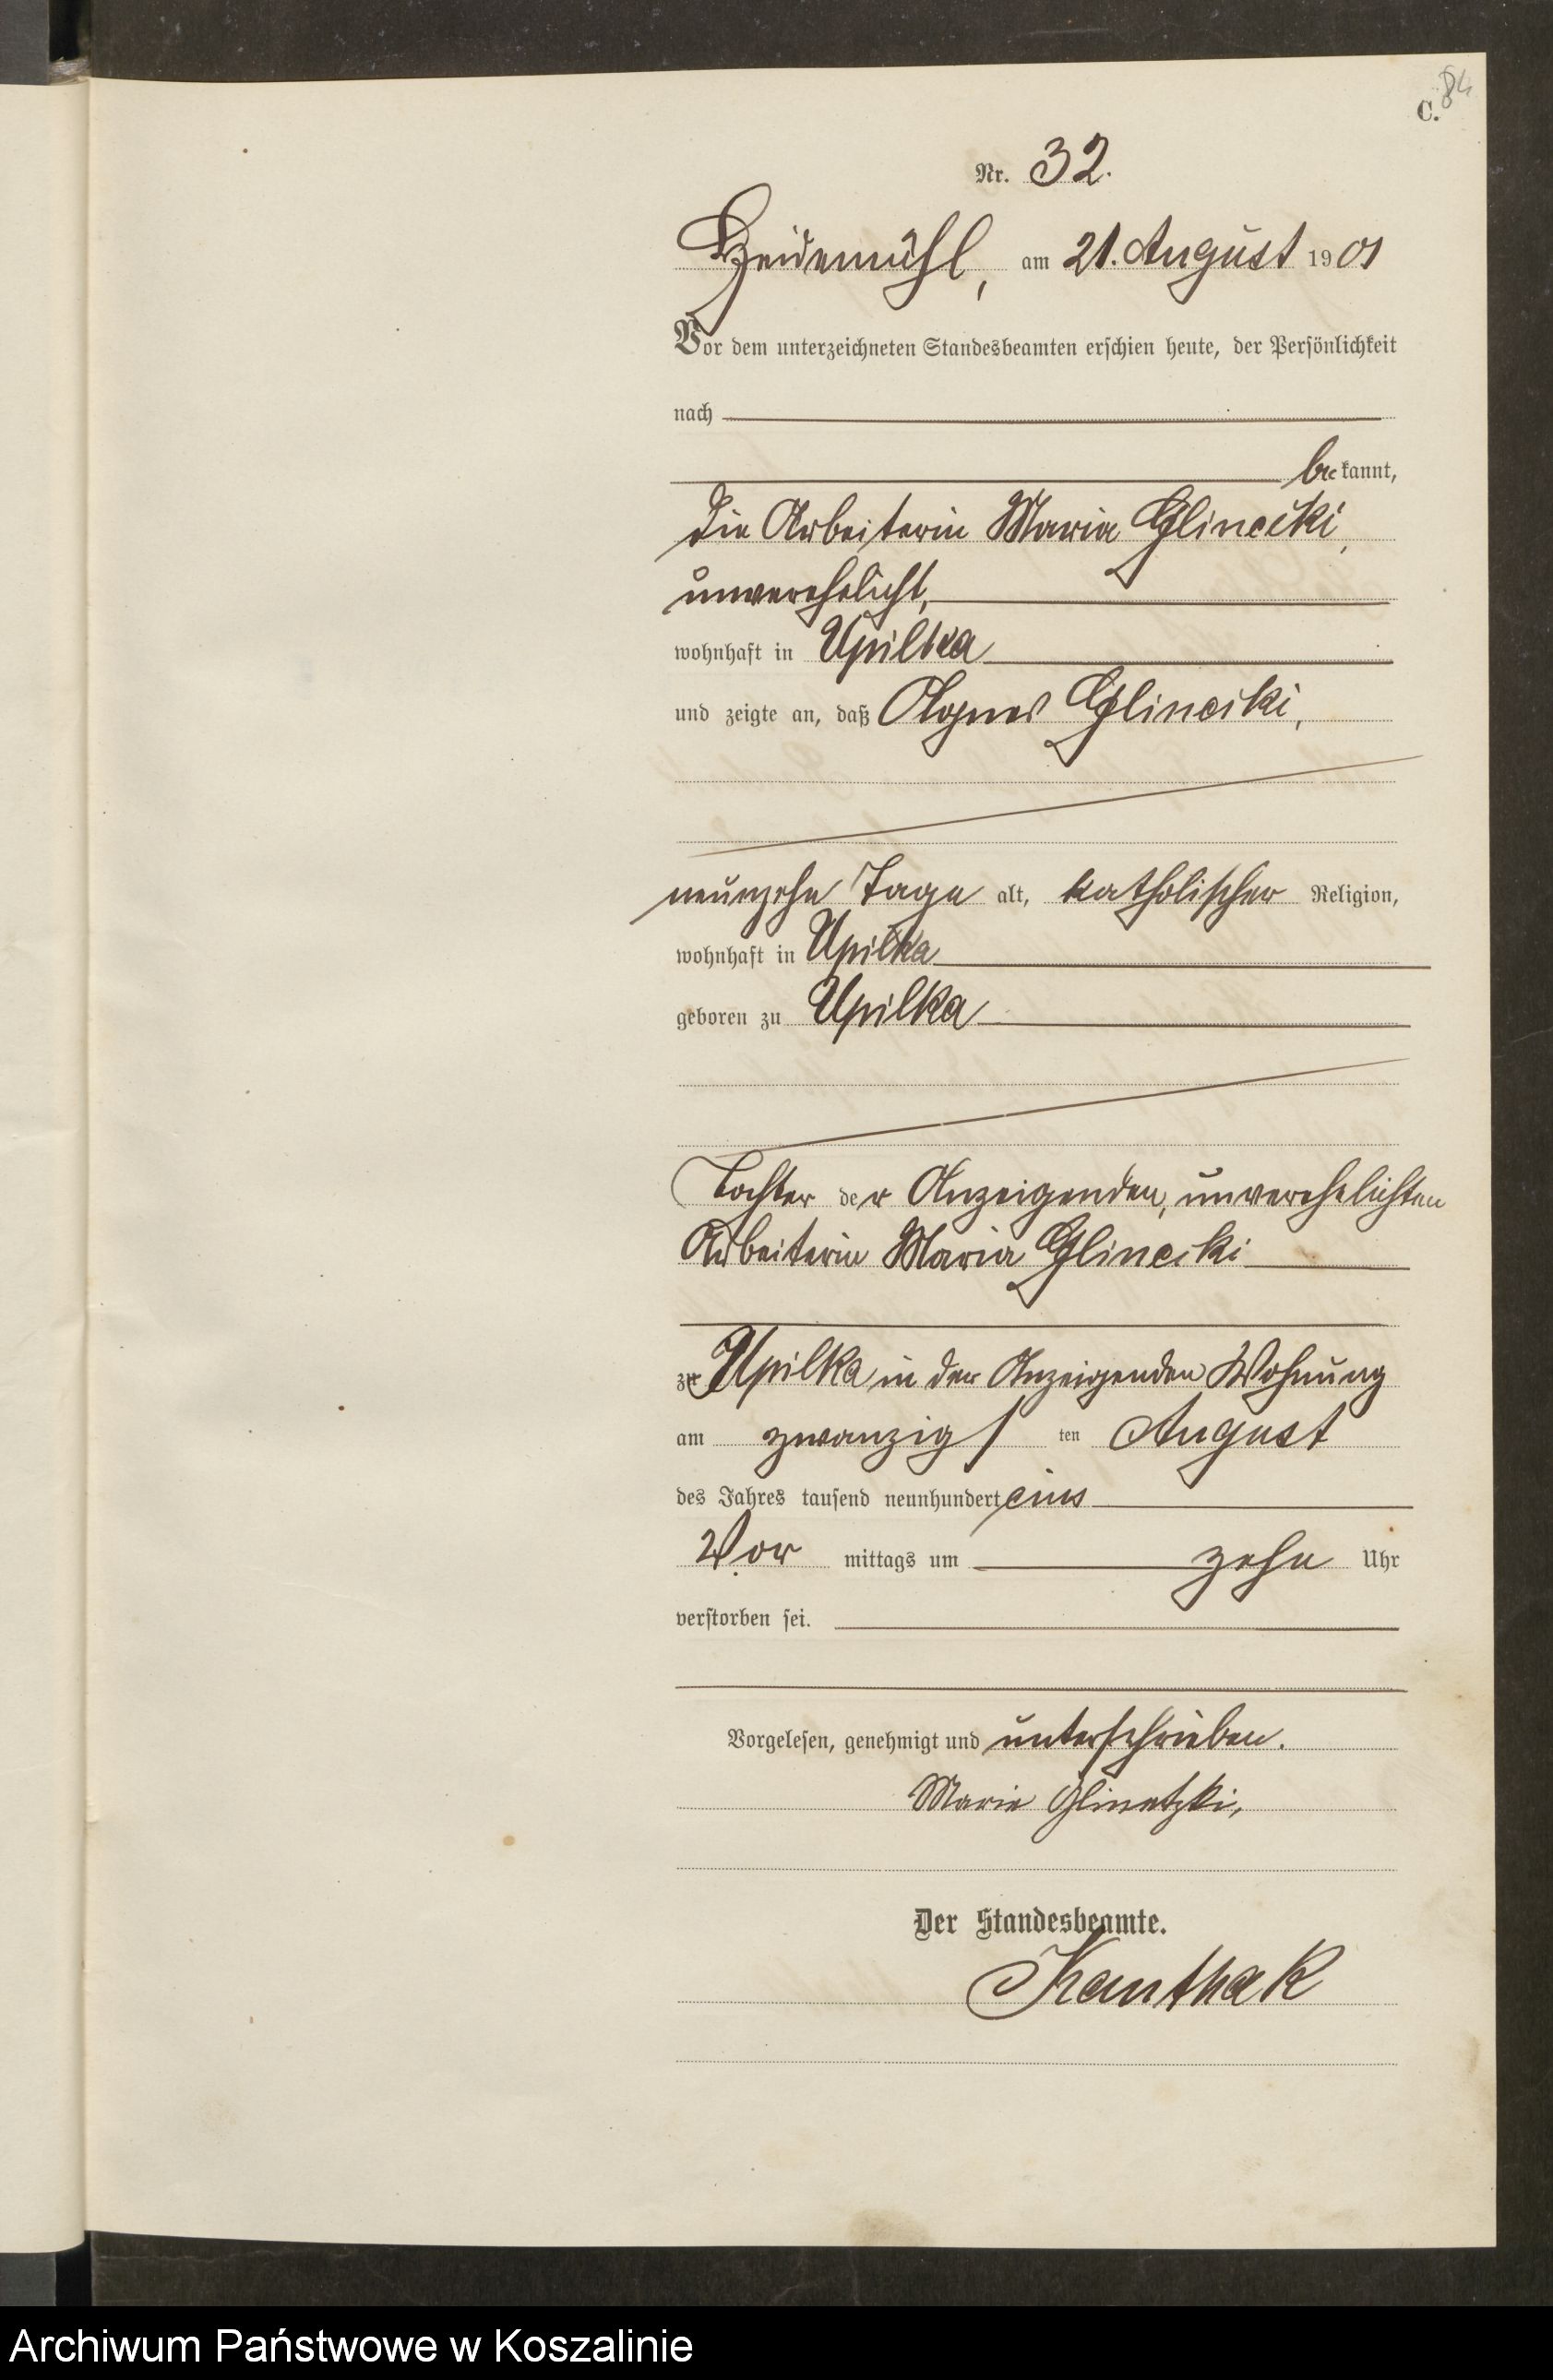 84
C.
Nr. 32.
Heidemühl, am 21. August 1901
Vor dem unterzeichneten Standesbeamten erschien heute, der Persönlichkeit
nach
bekannt,
die Arbeiterin Maria Glinecki,
unverehelicht,
wohnhaft in Upilka
und zeigte an, daß Agnes Glinecki,
neunzehn Tage alt, katholischer Religion,
wohnhaft in Upilka
geboren zu Upilka
Tochter der Anzeigenden, unverehelichten
Arbeiterin Maria Glinecki
zu Upilka in der Anzeigenden Wohnung
am zwanzigsten August
des Jahres tausend neunhundert eins
Vor mittags um zehn Uhr
verstorben sei.
Vorgelesen, genehmigt und unterschrieben.
Marie Glinetzki,
Der Standesbeamte.
Kanthak
Archiwum Państwowe w Koszalinie